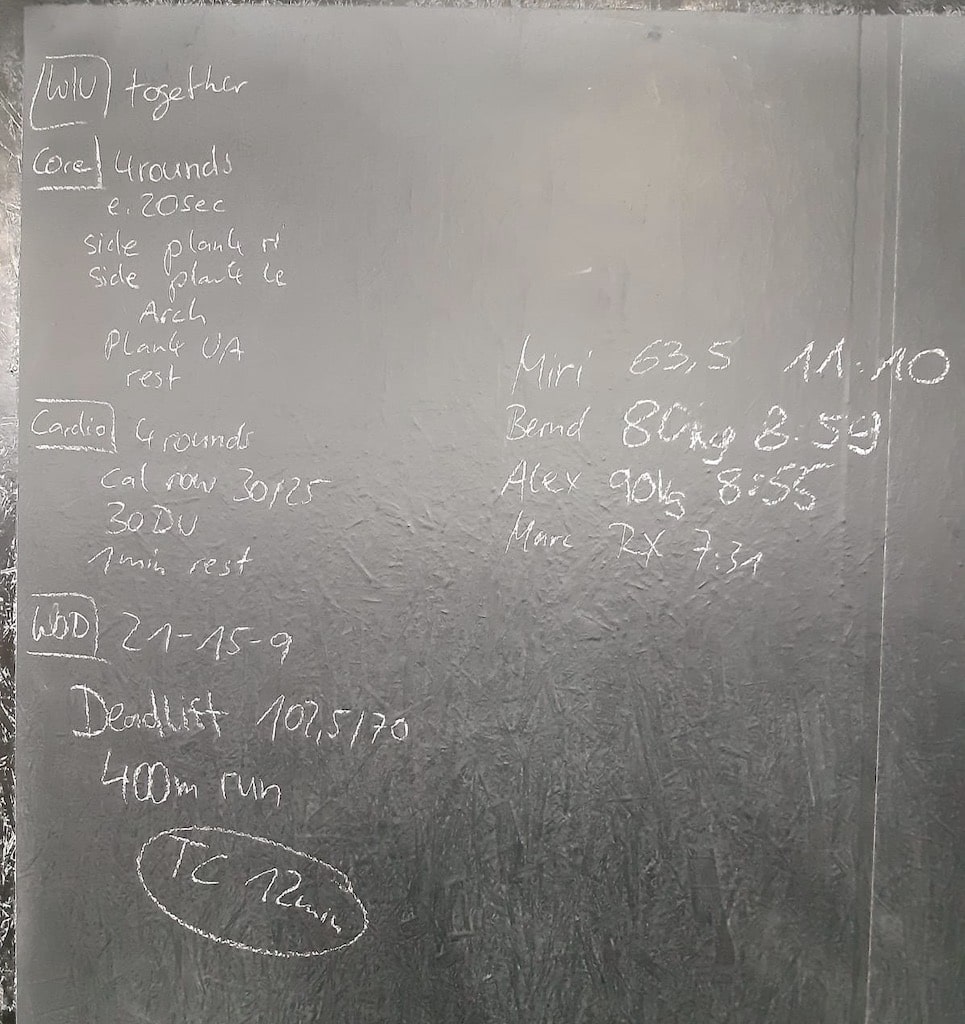 W/U together
Core 4 rounds
e. 20sec
side plank ri
side plank le
Arch
Plank U/A
rest
Cardio 4 rounds
Cal row 30/25
30 DU
1 min rest
WOD 21-15-9
Deadlift 102,5/70
400m run
TC 12min
Miri 63,5 11:10
Bernd 80kg 8:59
Alex 90kg 8:55
Marc RX 7:31